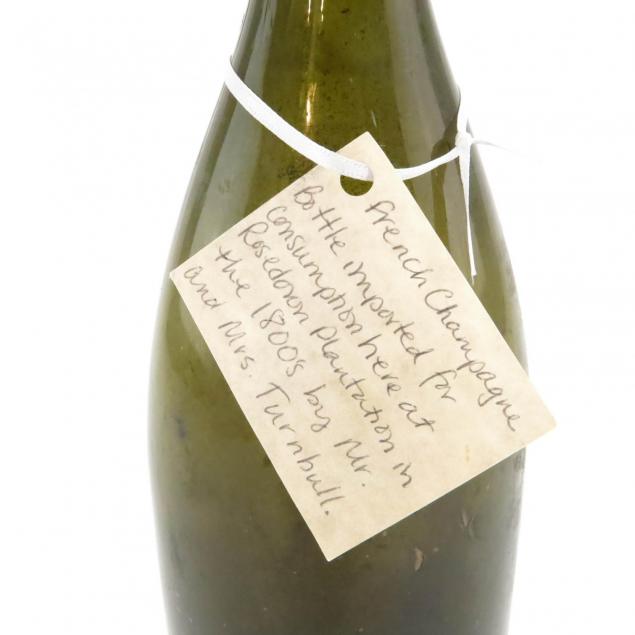 French Champagne
Bottle imported for
consumption here at
Rosedown Plantation in
the 1800s by Mr.
and Mrs. Turnbull.